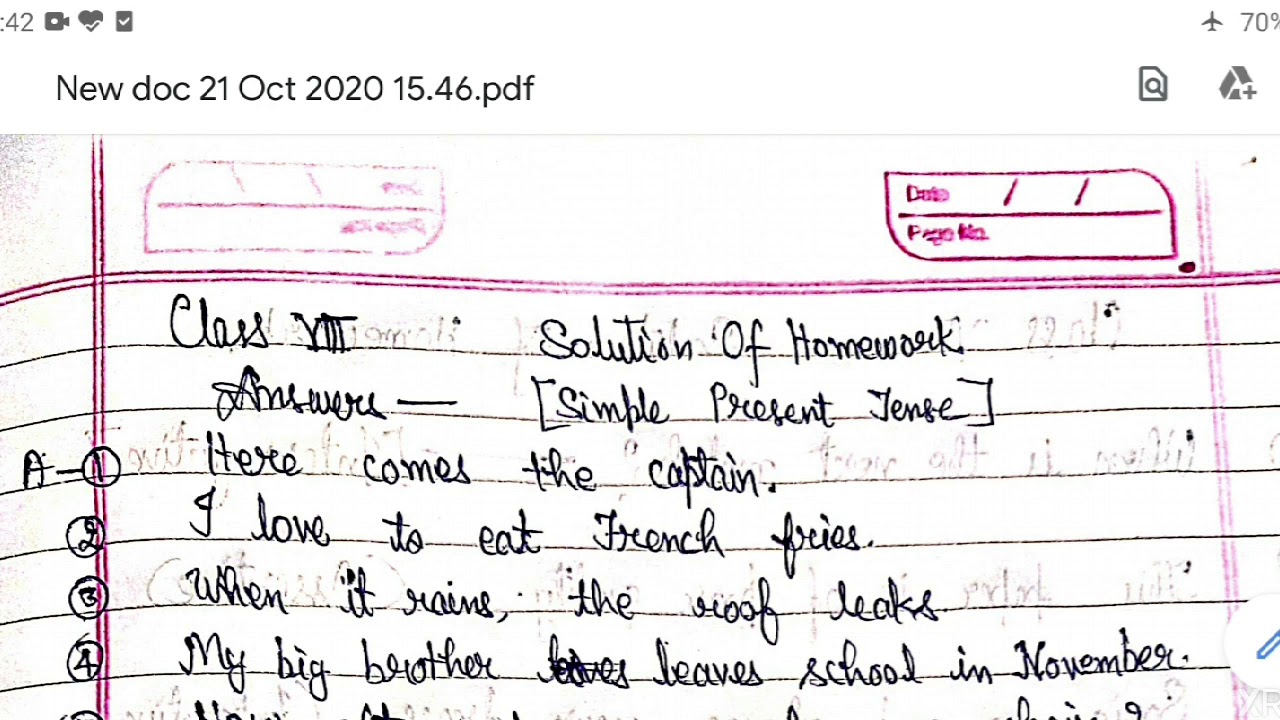 :42
70%
New doc 21 Oct 2020 15.46.pdf
Date / /
Page No.
Class VIII Solution Of Homework
Answers — [Simple Present Tense]
A-① Here comes the captain.
② I love to eat French fries.
③ When it rains, the roof leaks
④ My big brother leaves school in November.
XR